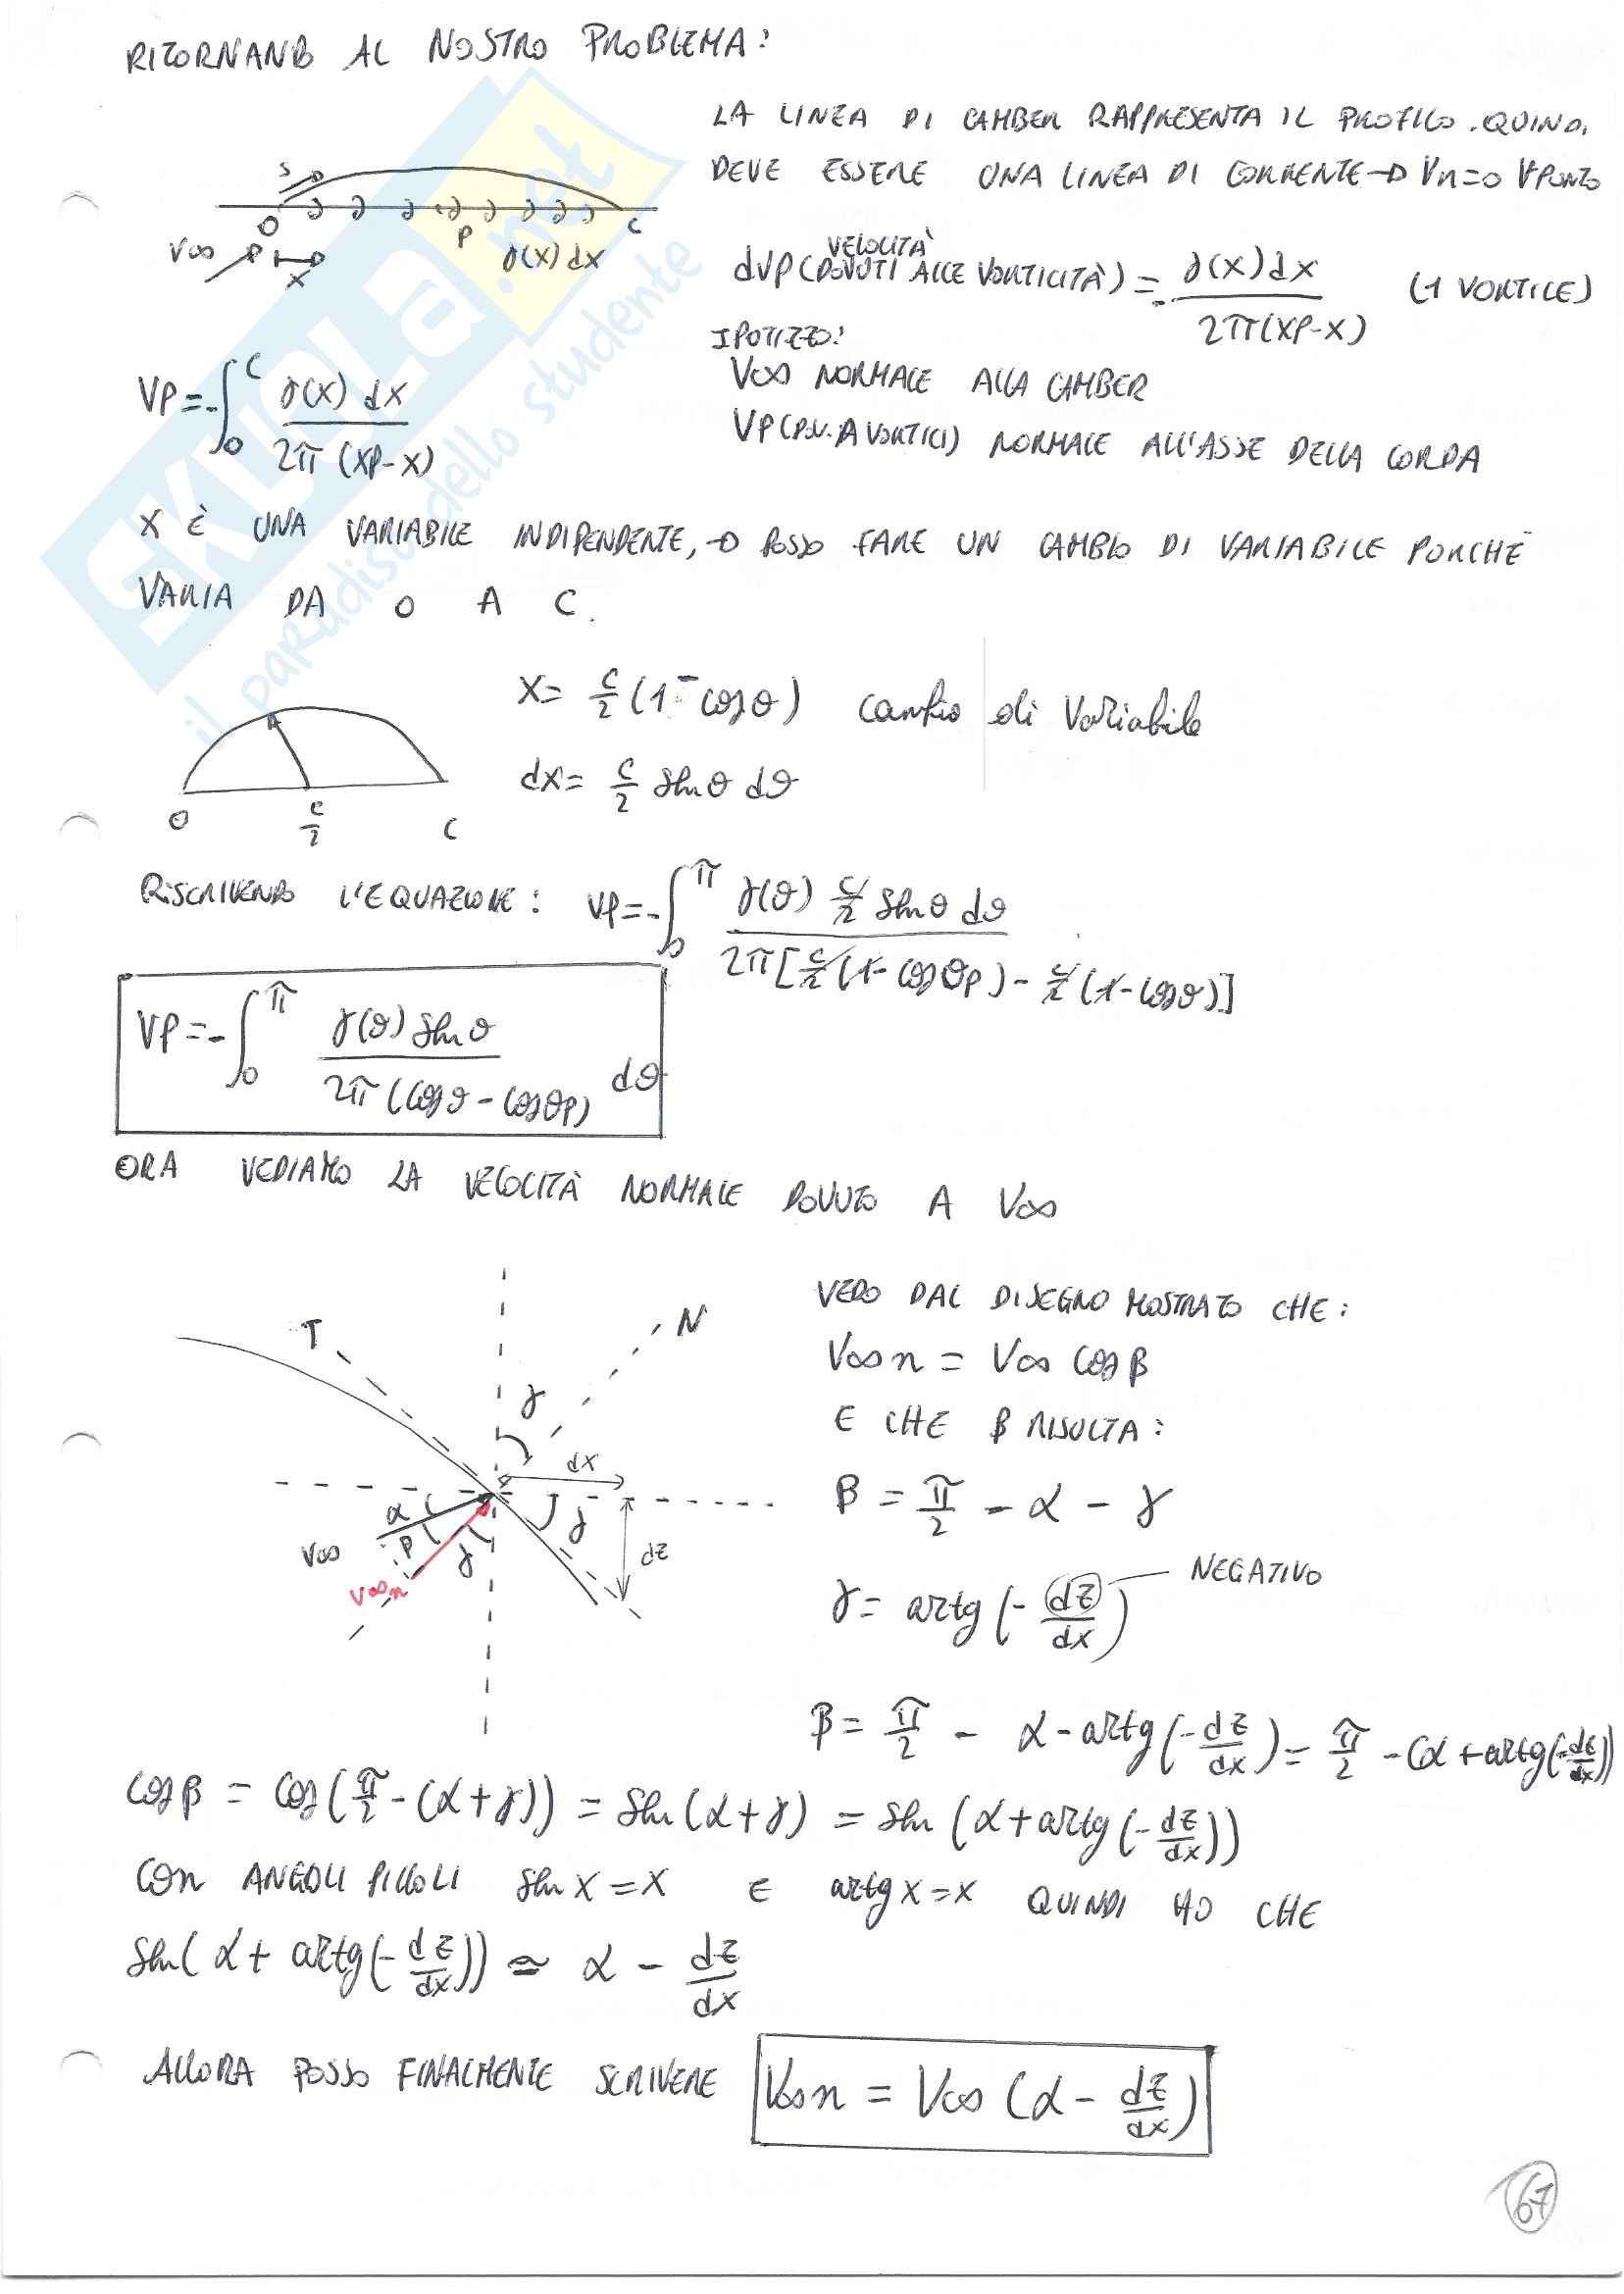 RITORNANDO AL NOSTRO PROBLEMA:
LA LINEA DI CAMBER RAPPRESENTA IL PROFILO. QUINDI
DEVE ESSERE UNA LINEA DI CORRENTE → Vn=0 ∀PUNTO
S
O P C
V∞ β x γ(x)dx
VELOCITÀ
dVP (DOVUTI ALLE VORTICITÀ) = - γ(x)dx / 2π(xP-x) (1 VORTICE)
IPOTIZZO:
V∞ NORMALE ALLA CAMBER
VP (DOV. A VORTICI) NORMALE ALL'ASSE DELLA CORDA
VP = -∫₀^C γ(x) dx / 2π (xP-x)
X È UNA VARIABILE INDIPENDENTE, → POSSO FARE UN CAMBIO DI VARIABILE PORCHÈ
VARIA DA O A C.
X = c/2 (1-cosθ) cambio di variabile
dx = c/2 senθ dθ
O c/2 C
RISCRIVENDO L'EQUAZIONE: VP = -∫₀^π γ(θ) c/2 senθ dθ / 2π[c/2 (1-cosθP) - c/2 (1-cosθ)]
VP = -∫₀^π γ(θ) senθ / 2π(cosθ - cosθP) dθ
ORA VEDIAMO LA VELOCITÀ NORMALE DOVUTO A V∞
T N
γ
dx
α β γ γ dz
V∞
V∞n
VEDO DAL DISEGNO MOSTRATO CHE:
V∞n = V∞ cosβ
E CHE β RISULTA:
β = π/2 - α - γ
γ = artg(- dz/dx) NEGATIVO
β = π/2 - α - artg(-dz/dx) = π/2 - (α + artg(-dz/dx))
cosβ = cos(π/2 - (α+γ)) = sen(α+γ) = sen(α + artg(-dz/dx))
CON ANGOLI PICCOLI sen x = x E artg x = x QUINDI HO CHE
sen(α + artg(-dz/dx)) ≃ α - dz/dx
ALLORA POSSO FINALMENTE SCRIVERE V∞n = V∞ (α - dz/dx)
67
SKUOLa.net
il paradiso dello studente